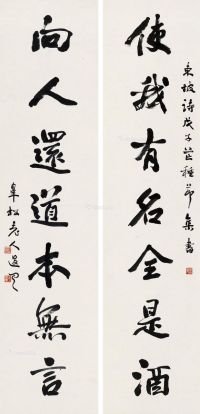 使我有名全是酒
東坡詩戊子芒種節集書
向人還道本無言
阜松老人